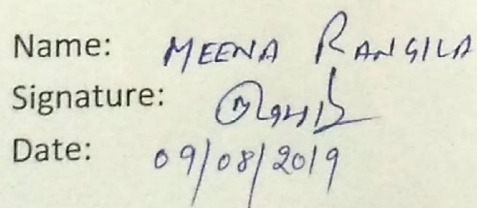 Name: MEENA RANGILA
Signature:
Date: 09/08/2019